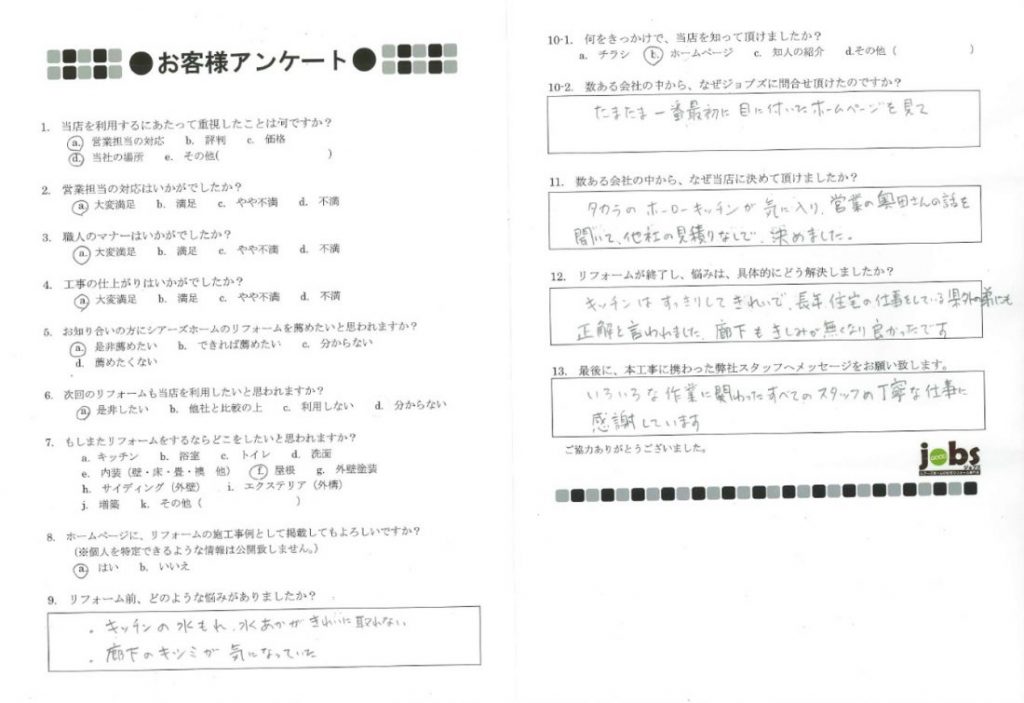 お客様アンケート
1. 当店を利用するにあたって重視したことは何ですか?
a. 営業担当の対応 b. 評判 c. 価格
d. 当社の場所 e. その他( )
2. 営業担当の対応はいかがでしたか?
a. 大変満足 b. 満足 c. やや不満 d. 不満
3. 職人のマナーはいかがでしたか?
a. 大変満足 b. 満足 c. やや不満 d. 不満
4. 工事の仕上がりはいかがでしたか?
a. 大変満足 b. 満足 c. やや不満 d. 不満
5. お知り合いの方にシアーズホームのリフォームを薦めたいと思われますか?
a. 是非薦めたい b. できれば薦めたい c. 分からない
d. 薦めたくない
6. 次回のリフォームも当店を利用したいと思われますか?
a. 是非したい b. 他社と比較の上 c. 利用しない d. 分からない
7. もしまたリフォームをするならどこをしたいと思われますか?
a. キッチン b. 浴室 c. トイレ d. 洗面
e. 内装(壁・床・畳・襖 他) f. 屋根 g. 外壁塗装
h. サイディング(外壁) i. エクステリア(外構)
j. 増築 k. その他( )
8. ホームページに、リフォームの施工事例として掲載してもよろしいですか?
(※個人を特定できるような情報は公開致しません。)
a. はい b. いいえ
9. リフォーム前、どのような悩みがありましたか?
・キッチンの水もれ、水あかがきれいに取れない
・廊下のキシミが気になっていた
10-1. 何をきっかけで、当店を知って頂けましたか?
a. チラシ b. ホームページ c. 知人の紹介 d.その他( )
10-2. 数ある会社の中から、なぜジョブズに問合せ頂けたのですか?
たまたま一番最初に目に付いたホームページを見て
11. 数ある会社の中から、なぜ当店に決めて頂けましたか?
タカラのホーローキッチンが気に入り、営業の奥田さんの話を
聞いて、他社の見積りなしで、決めました。
12. リフォームが終了し、悩みは、具体的にどう解決しましたか?
キッチンはすっきりしてきれいで、長年住宅の仕事をしている県外の弟にも
正解と言われました。廊下もきしみが無くなり良かったです
13. 最後に、本工事に携わった弊社スタッフへメッセージをお願い致します。
いろいろな作業に関わったすべてのスタッフの丁寧な仕事に
感謝しています
ご協力ありがとうございました。
jobs